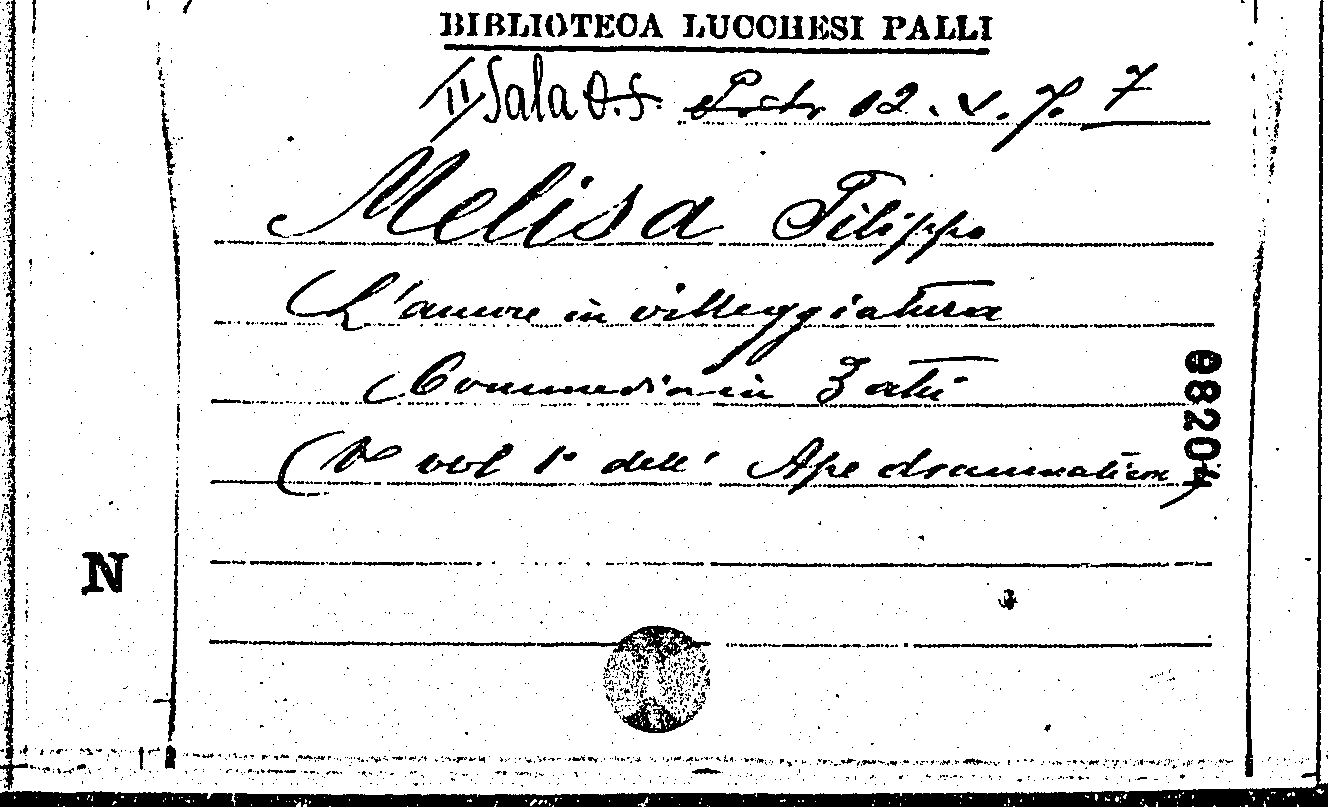 BIBLIOTECA LUCCHESI PALLI
II Sala 12. 7
Melisa Filippo
L'amore in villeggiatura
Commedia in 3 atti
(V° vol 1° dell' Ape drammatica)
09820
N